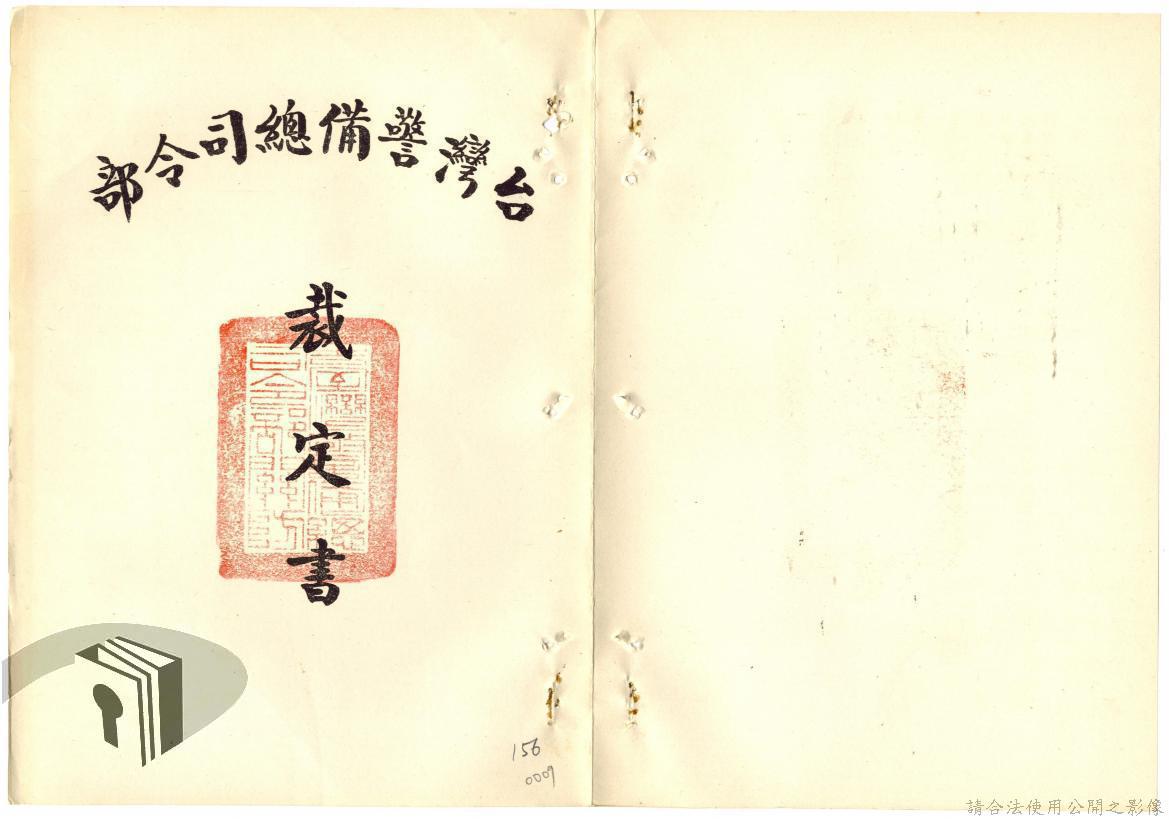 台灣警備總司令部
裁定書
156
0009
請合法使用公開之影像